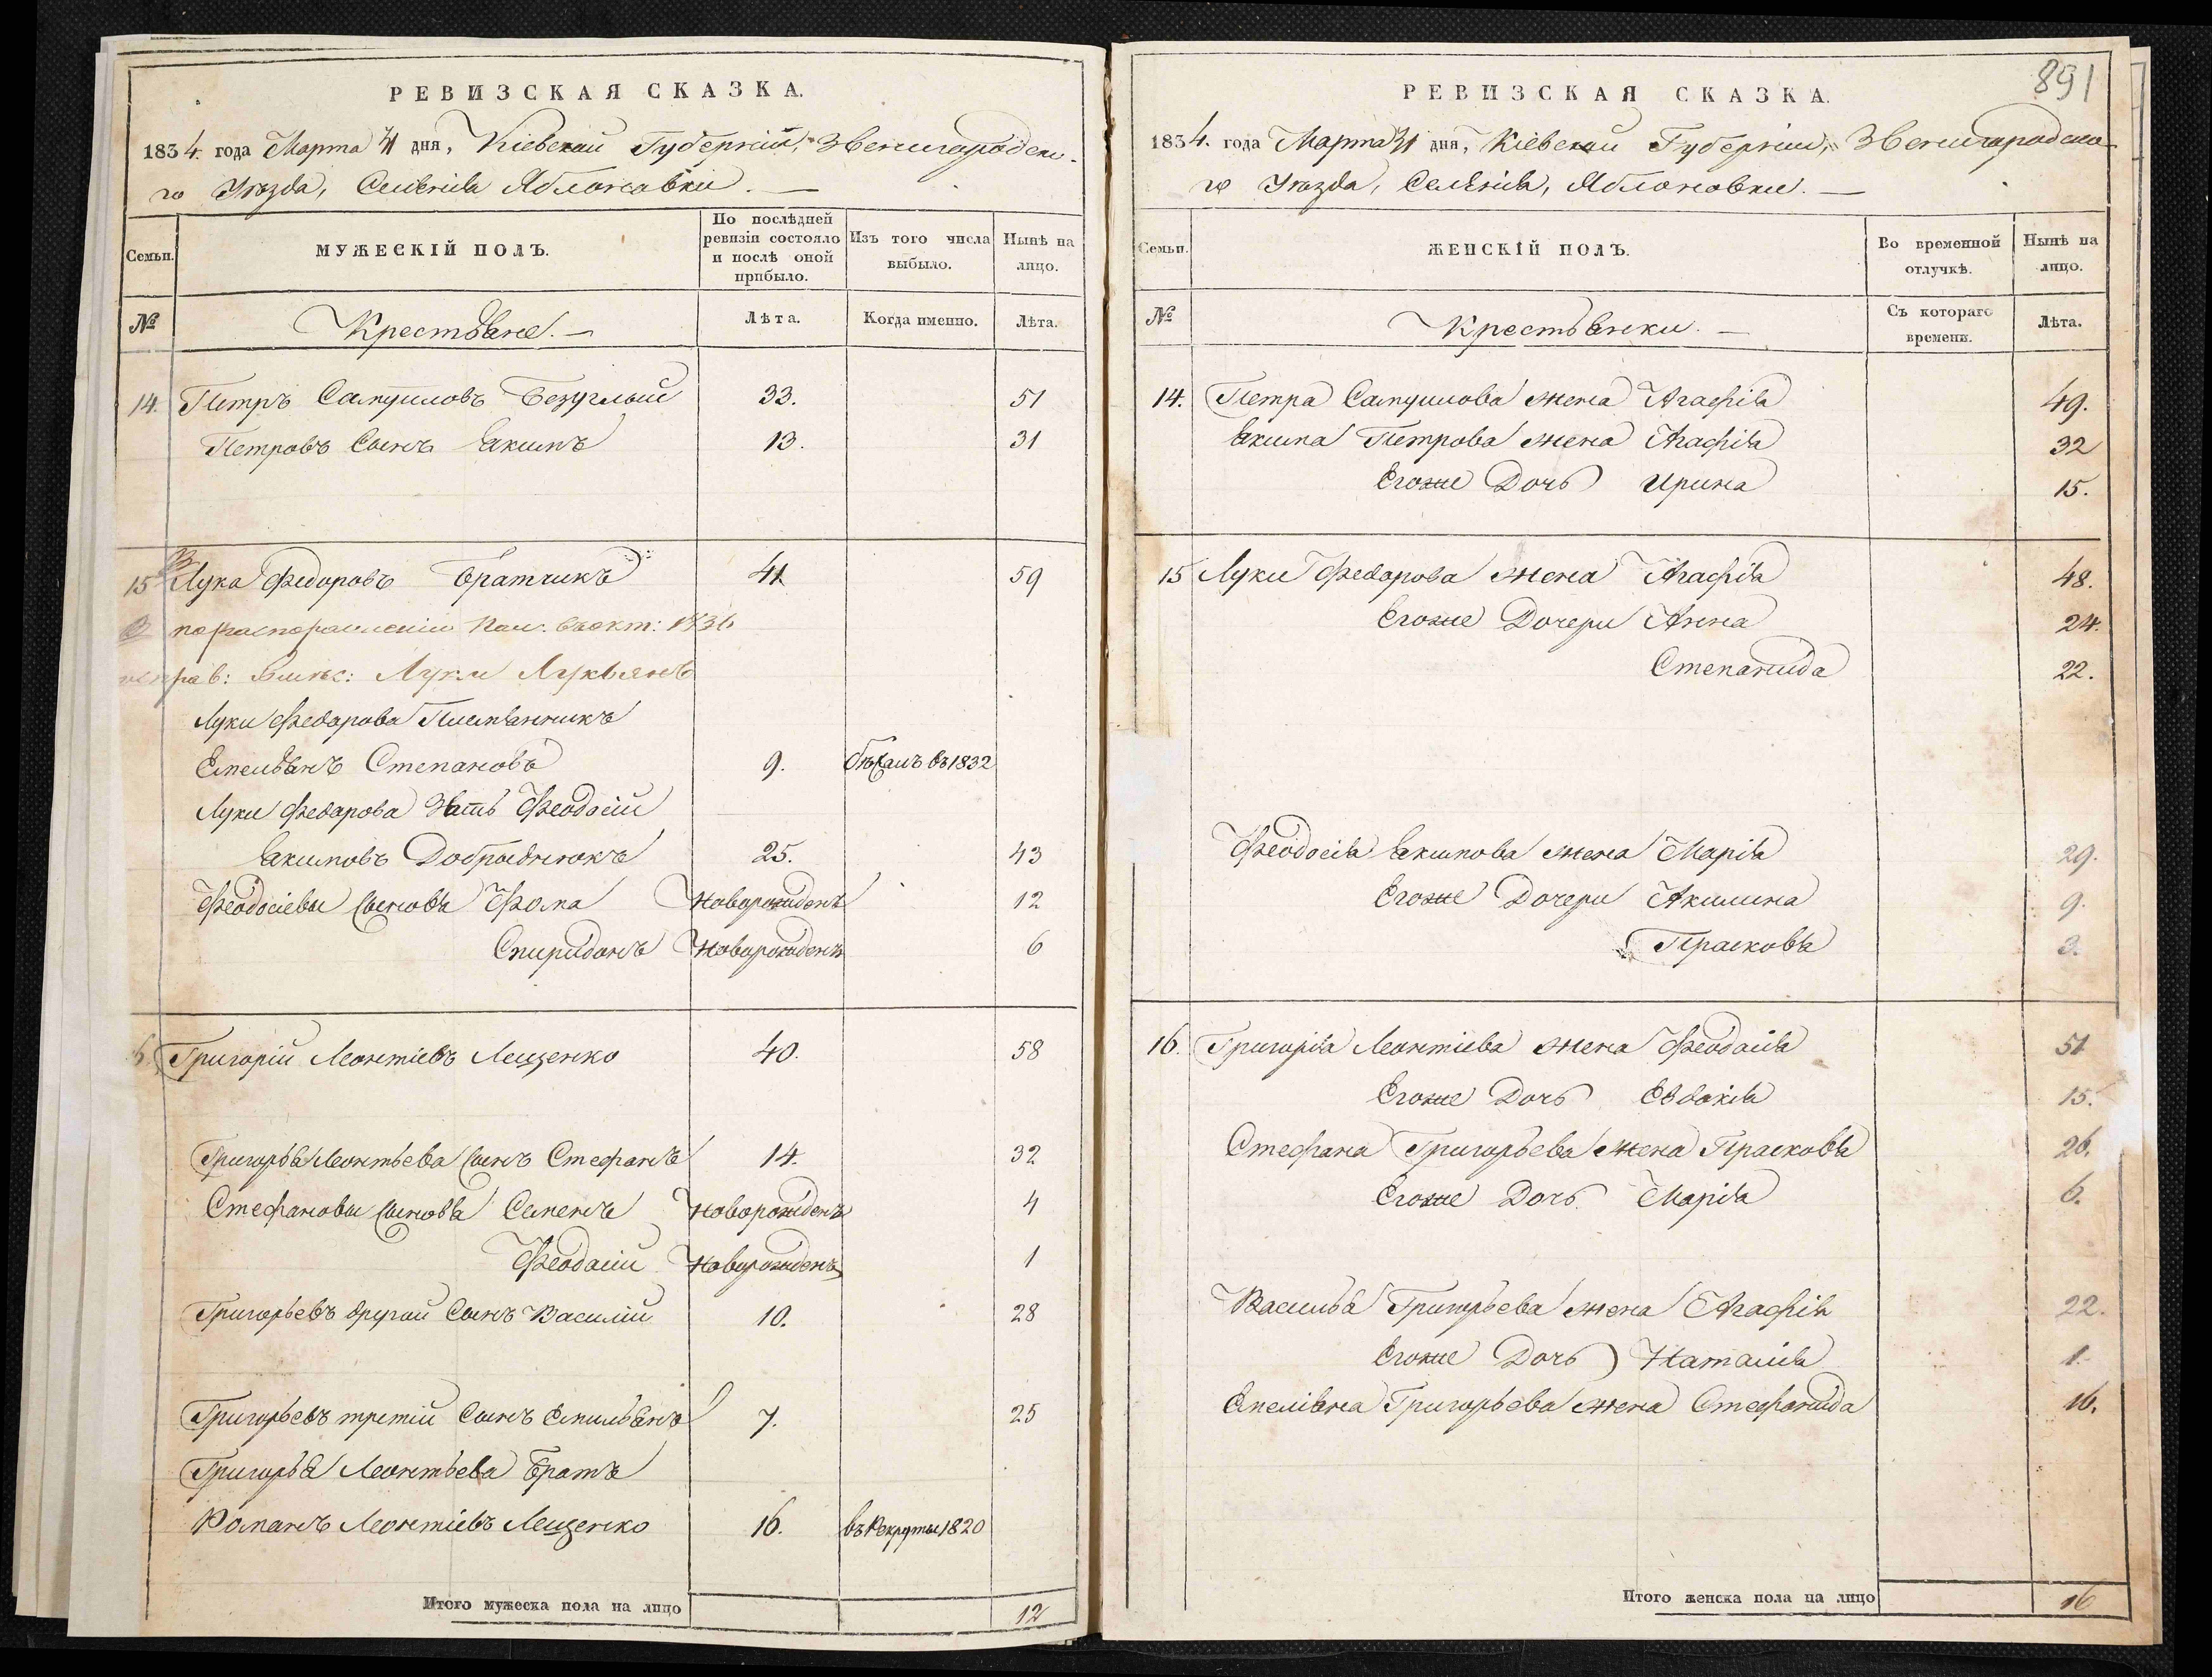 РЕВИЗСКАЯ СКАЗКА.
1834. года Марта 31 дня, Кіевской Губерніи, Звенигородска-
го Уѣзда, Селенія Яблоновки.
Семьи.
МУЖЕСКІЙ ПОЛЪ.
По послѣдней ревизіи состояло и послѣ оной прибыло.
Изъ того числа выбыло.
Нынѣ на лицо.
№
Крестьяне.
Лѣта.
Когда именно.
Лѣта.
14. Петръ Самуиловъ Безуглый 33. 51
Петровъ Сынъ Якимъ 13. 31
15 Лука Федоровъ Братчикъ 41 59
1836
Луки Лукьянъ
Луки Федорова Племянникъ
Емельянъ Степановъ 9. бѣжалъ въ 1832
Луки Федорова Зять Феодосій
Якимовъ Добрыднюкъ 25. 43
Феодосіевы Сыновья Фома Новорожденъ 12
Спиридонъ Новорожденъ 6
Григорій Леонтіевъ Лещенко 40. 58
Григорья Леонтьева Сынъ Стефанъ 14. 32
Стефановы Сыновья Семенъ Новорожденъ 4
Феодосій Новорожденъ 1
Григорьевъ другой Сынъ Василій 10. 28
Григорьевъ третій Сынъ Емильянъ 7. 25
Григорья Леонтьева Братъ
Романъ Леонтіевъ Лещенко 16. въ Рекруты 1820
Итого мужеска пола на лицо 12
891
РЕВИЗСКАЯ СКАЗКА.
1834. года Марта 31 дня, Кіевской Губерніи, Звенигородска-
го Уѣзда, Селенія, Яблоновки.
Семьи.
ЖЕНСКІЙ ПОЛЪ.
Во временной отлучкѣ.
Нынѣ на лицо.
№
Крестьянки.
Съ котораго времени.
Лѣта.
14. Петра Самуилова жена Агафія 49.
Якима Петрова жена Агафія 32
Егоже Дочь Ирина 15.
15 Луки Федорова жена Агафія 48.
Егоже Дочери Анна 24.
Степанида 22.
Феодосія Якимова жена Марія 29.
Егоже Дочери Акилина 9.
Прасковья 3.
16. Григорія Леонтіева жена Феодосія 51
Егоже Дочь Евдокія 15.
Стефана Григорьева жена Прасковья 26.
Егоже Дочь Марія 6.
Василья Григорьева жена Агафія 22.
Егоже Дочь Наталія 1.
Емеліяна Григорьева жена Стефанида 16.
Итого женска пола на лицо 16